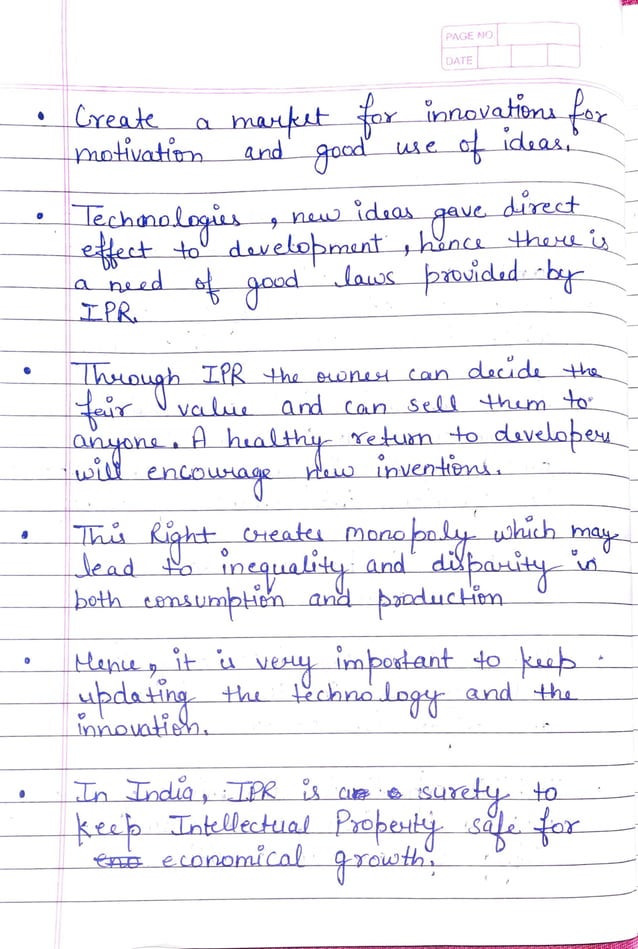 PAGE NO
DATE
• Create a market for innovations for
motivation and good use of ideas.
• Technologies, new ideas gave direct
effect to development, hence there is
a need of good laws provided by
IPR.
• Through IPR the owner can decide the
fair value and can sell them to
anyone. A healthy return to developers
will encourage new inventions.
• This Right creates monopoly which may
lead to inequality and disparity in
both consumption and production
• Hence, it is very important to keep
updating the technology and the
innovation.
• In India, IPR is a surety to
keep Intellectual Property safe for
economical growth.